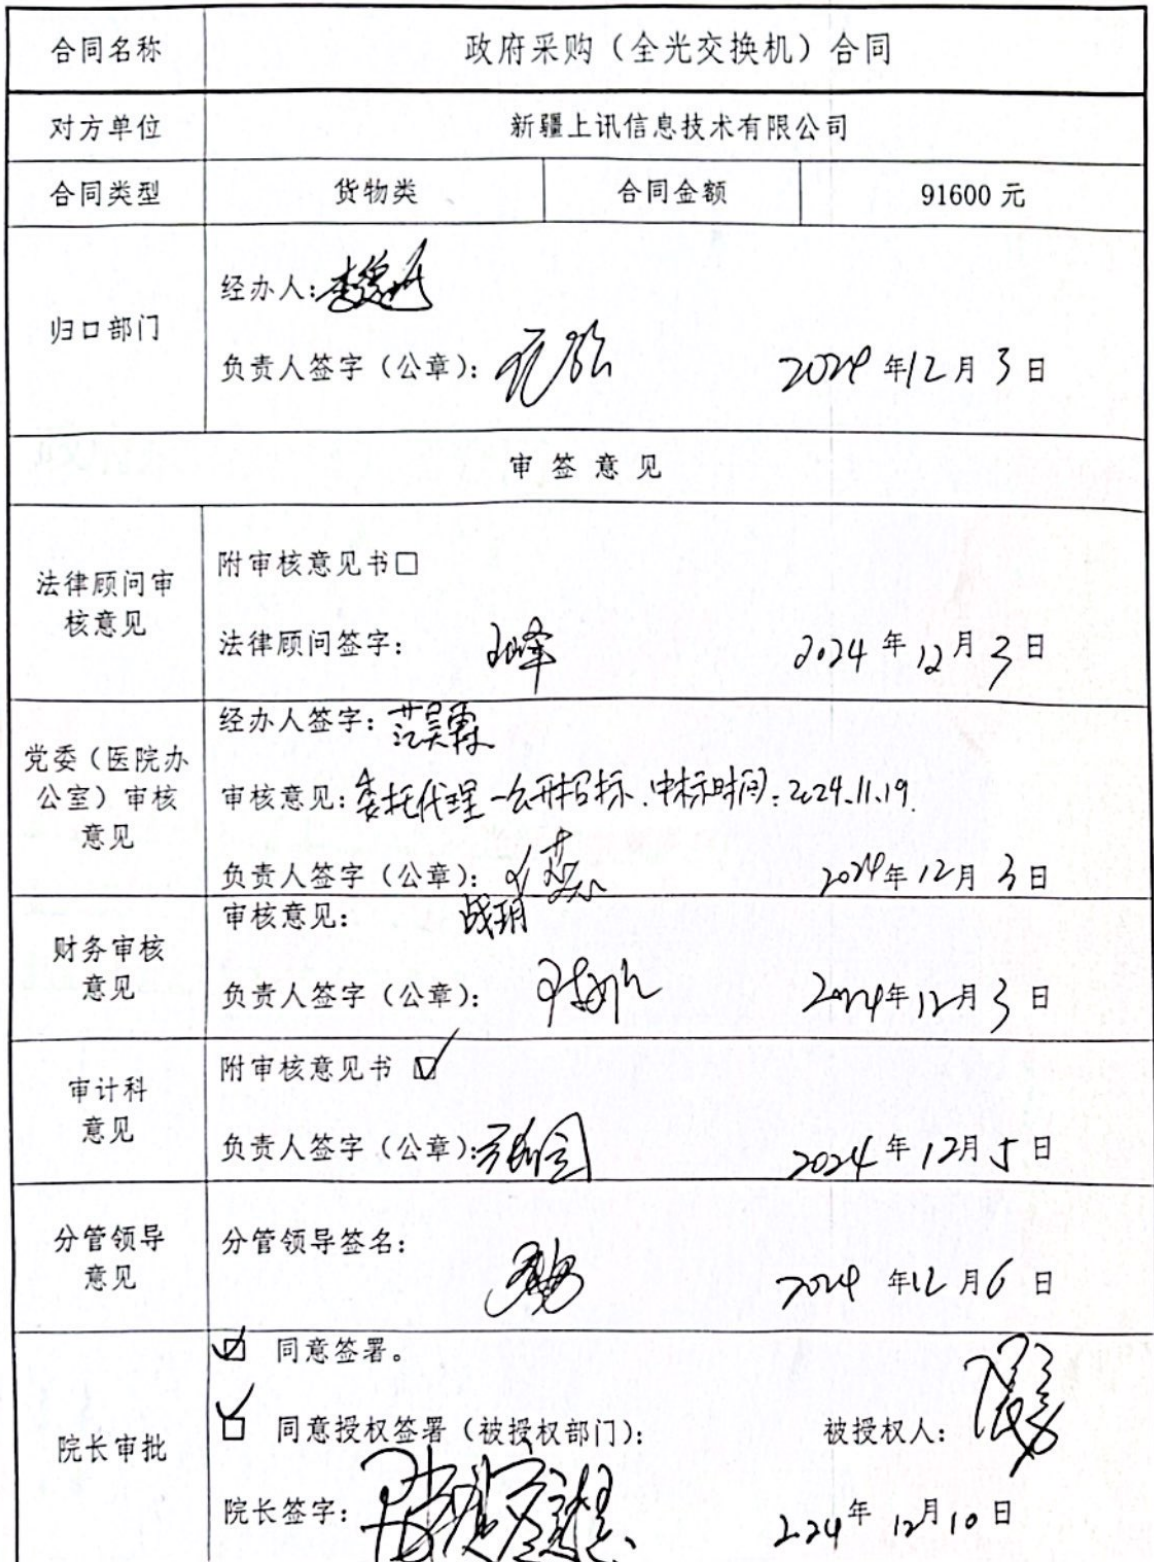 合同名称 政府采购（全光交换机）合同
对方单位 新疆上讯信息技术有限公司
合同类型 货物类 合同金额 91600 元
归口部门
经办人:
负责人签字（公章）: 2024 年 12 月 3 日
审 签 意 见
法律顾问审
核意见
附审核意见书□
法律顾问签字: 2024 年 12 月 3 日
党委（医院办
公室）审核
意见
经办人签字: 范昊霖
审核意见: 委托代理-公开招标.中标时间:2024.11.19.
负责人签字（公章）: 2024 年 12 月 3 日
财务审核
意见
审核意见: 战玥
负责人签字（公章）: 2024 年 12 月 3 日
审计科
意见
附审核意见书 ☑
负责人签字（公章）: 2024 年 12 月 5 日
分管领导
意见
分管领导签名: 2024 年 12 月 6 日
院长审批
☑ 同意签署。
☑ 同意授权签署（被授权部门）: 被授权人:
院长签字: 224 年 12 月 10 日